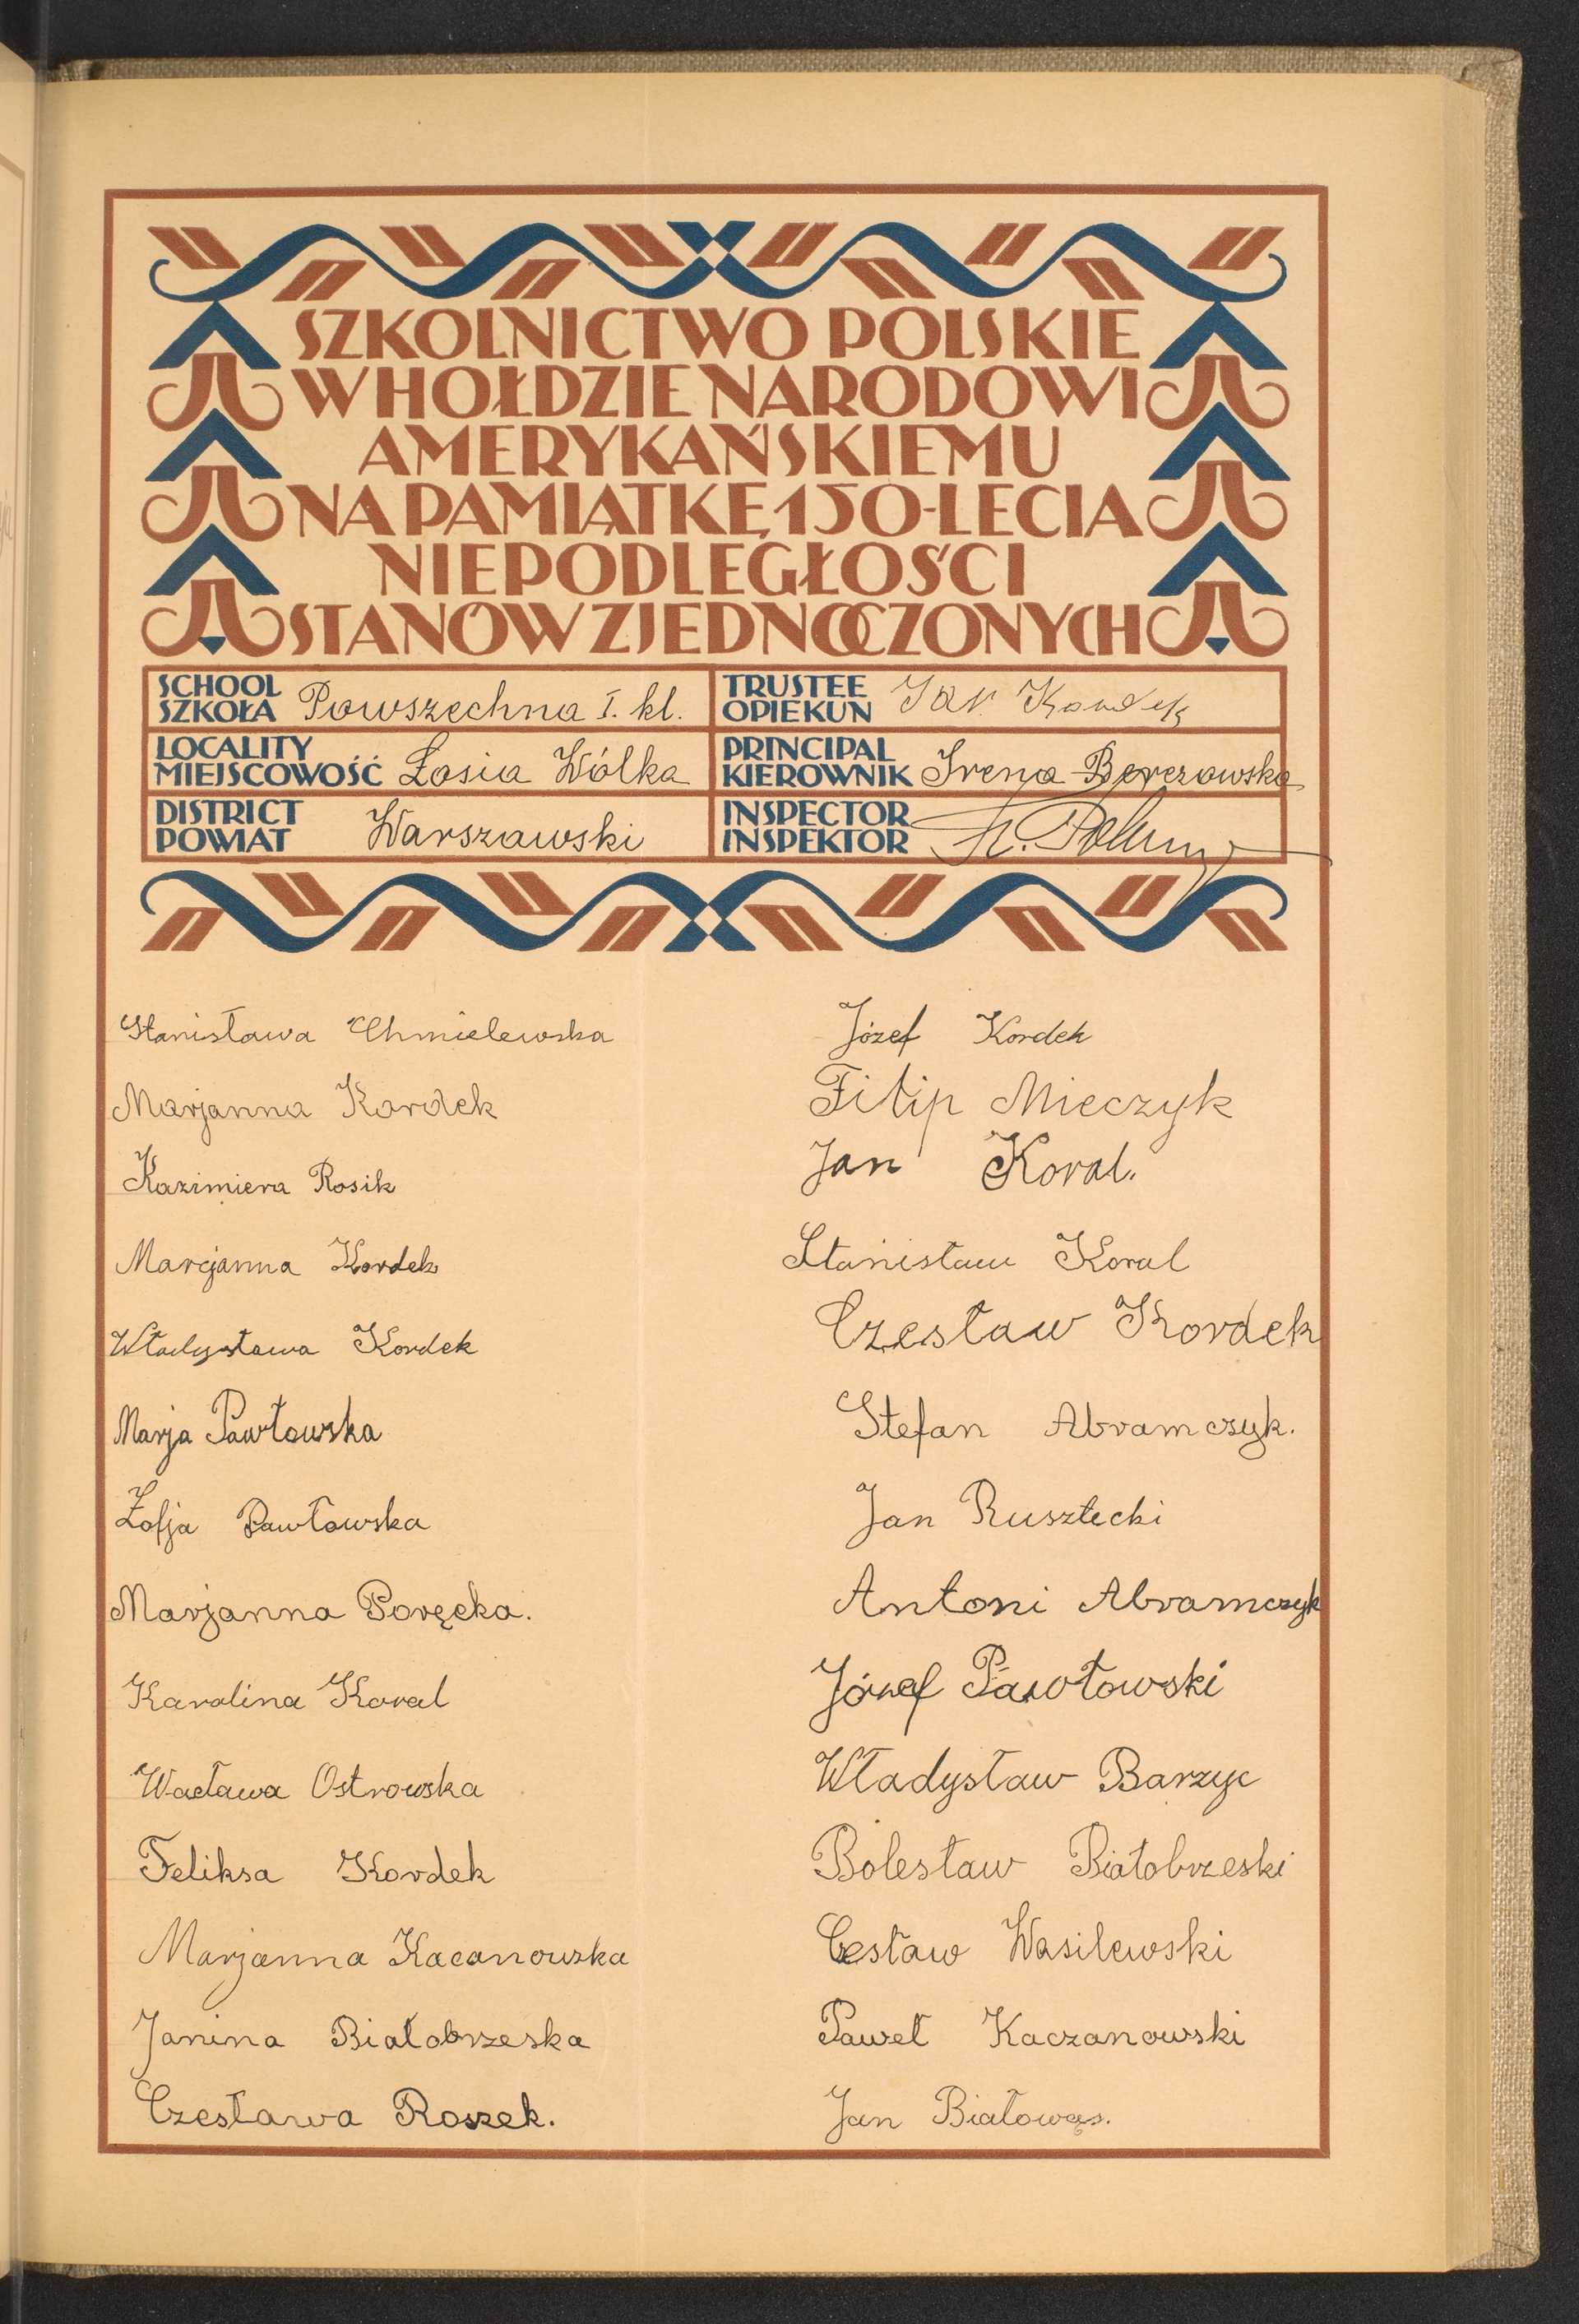 SZKOLNICTWO POLSKIE
W HOŁDZIE NARODOWI
AMERYKAŃSKIEMU
NA PAMIĄTKĘ 150-LECIA
NIEPODLEGŁOŚCI
STANÓW ZJEDNOCZONYCH
SCHOOL
SZKOŁA Powszechna I. kl.
TRUSTEE
OPIEKUN Jan Kordek
LOCALITY
MIEJSCOWOŚĆ Łosia Wólka
PRINCIPAL
KIEROWNIK Irena Berezowska
DISTRICT
POWIAT Warszawski
INSPECTOR
INSPEKTOR
Stanisława Chmielewska
Marjanna Kordek
Kazimiera Rosik
Marcjanna Kordek
Władysława Kordek
Marja Pawłowska
Zofja Pawłowska
Marjanna Poręcka.
Karolina Koral
Wacława Ostrowska
Feliksa Kordek
Marjanna Kacanowska
Janina Białobrzeska
Czesława Roszek.
Józef Kordek
Filip Mieczyk
Jan Koral.
Stanisław Koral
Czesław Kordek
Stefan Abramczyk.
Jan Rusztecki
Antoni Abramczyk
Józef Pawłowski
Władysław Barzyc
Bolesław Białobrzeski
Cesław Wasilewski
Paweł Kaczanowski
Jan Białowąs.